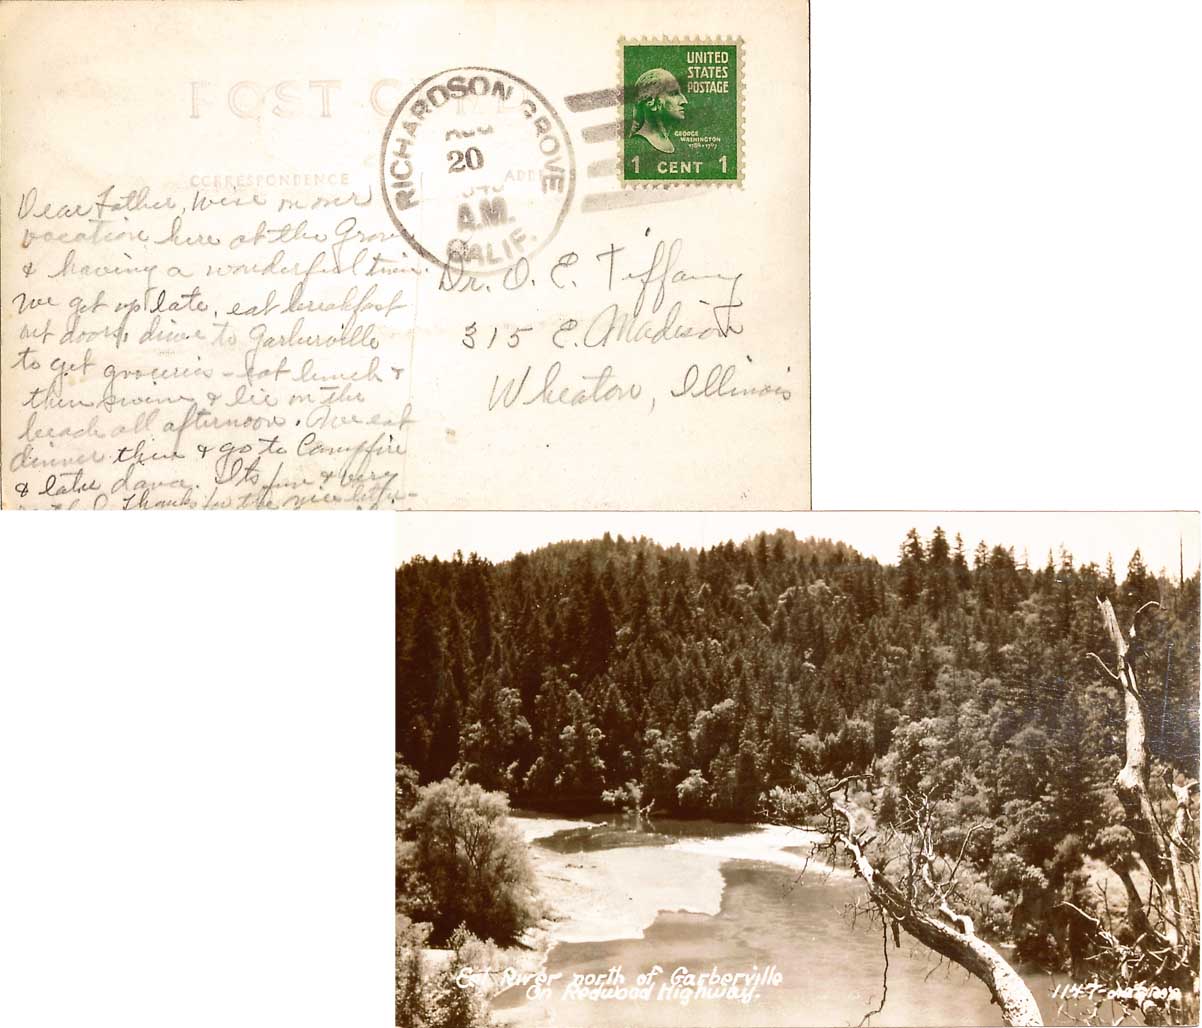 POST
CORRESPONDENCE
RICHARDSON GROVE
AUG
20
A.M.
CALIF.
UNITED
STATES
POSTAGE
GEORGE
WASHINGTON
1 CENT 1
Dear Father, We're on our
vacation here at the Grove
& having a wonderful time.
We get up late, eat breakfast
out doors, drive to Garberville
to get groceries - eat lunch &
then swim & lie on the
beach all afternoon. We eat
dinner then & go to Campfire
& later dance. Its fun & very
Thanks for the nice letter -
Dr. O. E. Tiffany
315 E. Madison
Wheaton, Illinois
Eel River north of Garberville
On Redwood Highway.